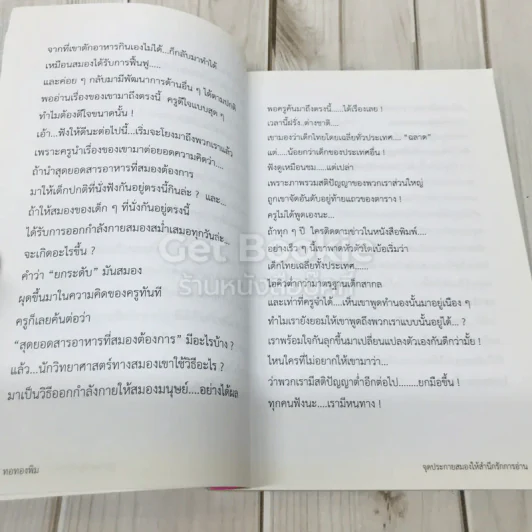 จากที่เขาตักอาหารกินเองไม่ได้....ก็กลับมาทำได้
เหมือนสมองได้รับการฟื้นฟู.....
และค่อย ๆ กลับมามีพัฒนาการด้านอื่น ๆ ได้ตามปกติ
พออ่านเรื่องของเขามาถึงตรงนี้ ครูดีใจแบบสุด ๆ
ทำไมต้องดีใจขนาดนั้น !
เอ้า...ฟังให้ดีนะต่อไปนี้...เริ่มจะโยงมาถึงพวกเราแล้ว
เพราะครูนำเรื่องของเขามาต่อยอดความคิดว่า....
ถ้านำสุดยอดสารอาหารที่สมองต้องการ
มาให้เด็กปกติที่นั่งฟังกันอยู่ตรงนี้กินล่ะ ? และ...
ถ้าให้สมองของเด็ก ๆ ที่นั่งกันอยู่ตรงนี้
ได้รับการออกกำลังกายสมองสม่ำเสมอทุกวันล่ะ...
จะเกิดอะไรขึ้น ?
คำว่า “ยกระดับ” มันสมอง
ผุดขึ้นมาในความคิดของครูทันที
ครูก็เลยค้นต่อว่า
“สุดยอดสารอาหารที่สมองต้องการ” มีอะไรบ้าง ?
แล้ว...นักวิทยาศาสตร์ทางสมองเขาใช้วิธีอะไร ?
มาเป็นวิธีออกกำลังกายให้สมองมนุษย์....อย่างได้ผล
ทอทองพิม
พอครูค้นมาถึงตรงนี้.....ได้เรื่องเลย !
เวลานี้ฝรั่ง..ต่างชาติ....
เขามองว่าเด็กไทยโดยเฉลี่ยทั่วประเทศ.... “ฉลาด”
แต่.....น้อยกว่าเด็กของประเทศอื่น !
ฟังดูเหมือนชม.....แต่เปล่า
เพราะภาพรวมสติปัญญาของพวกเราส่วนใหญ่
ถูกเขาจัดอันดับอยู่ท้ายแถวของตาราง !
ครูไม่ได้พูดเองนะ...
ถ้าทุก ๆ ปี ใครติดตามข่าวในหนังสือพิมพ์....
อย่างเร็ว ๆ นี้เขาพาดหัวตัวใหญ่เบ้อเริ่มว่า
เด็กไทยเฉลี่ยทั้งประเทศ......
ไอคิวต่ำกว่ามาตรฐานเด็กสากล
และเท่าที่ครูจำได้....เห็นเขาพูดทำนองนั้นมาอยู่เนือง ๆ
ทำไมเรายังยอมให้เขาพูดถึงพวกเราแบบนั้นอยู่ได้... ?
เราพร้อมใจกันลุกขึ้นมาเปลี่ยนแปลงตัวเองกันดีกว่ามั้ย !
ไหนใครที่ไม่อยากให้เขามาว่า...
ว่าพวกเรามีสติปัญญาต่ำอีกต่อไป........ยกมือขึ้น !
ทุกคนฟังนะ....เรามีหนทาง !
จุดประกายสมองให้สำนึกรักการอ่าน